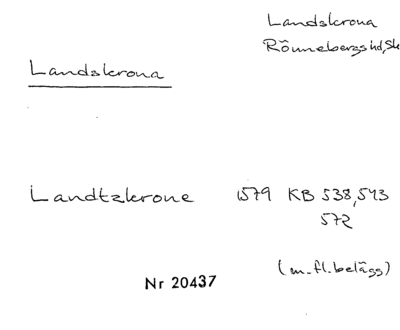 Landskrona
Rönnebergs hd, Sk
Landskrona
Landtzkrone 1579 KB 538, 543
572
(m. fl. belägg)
Nr 20437